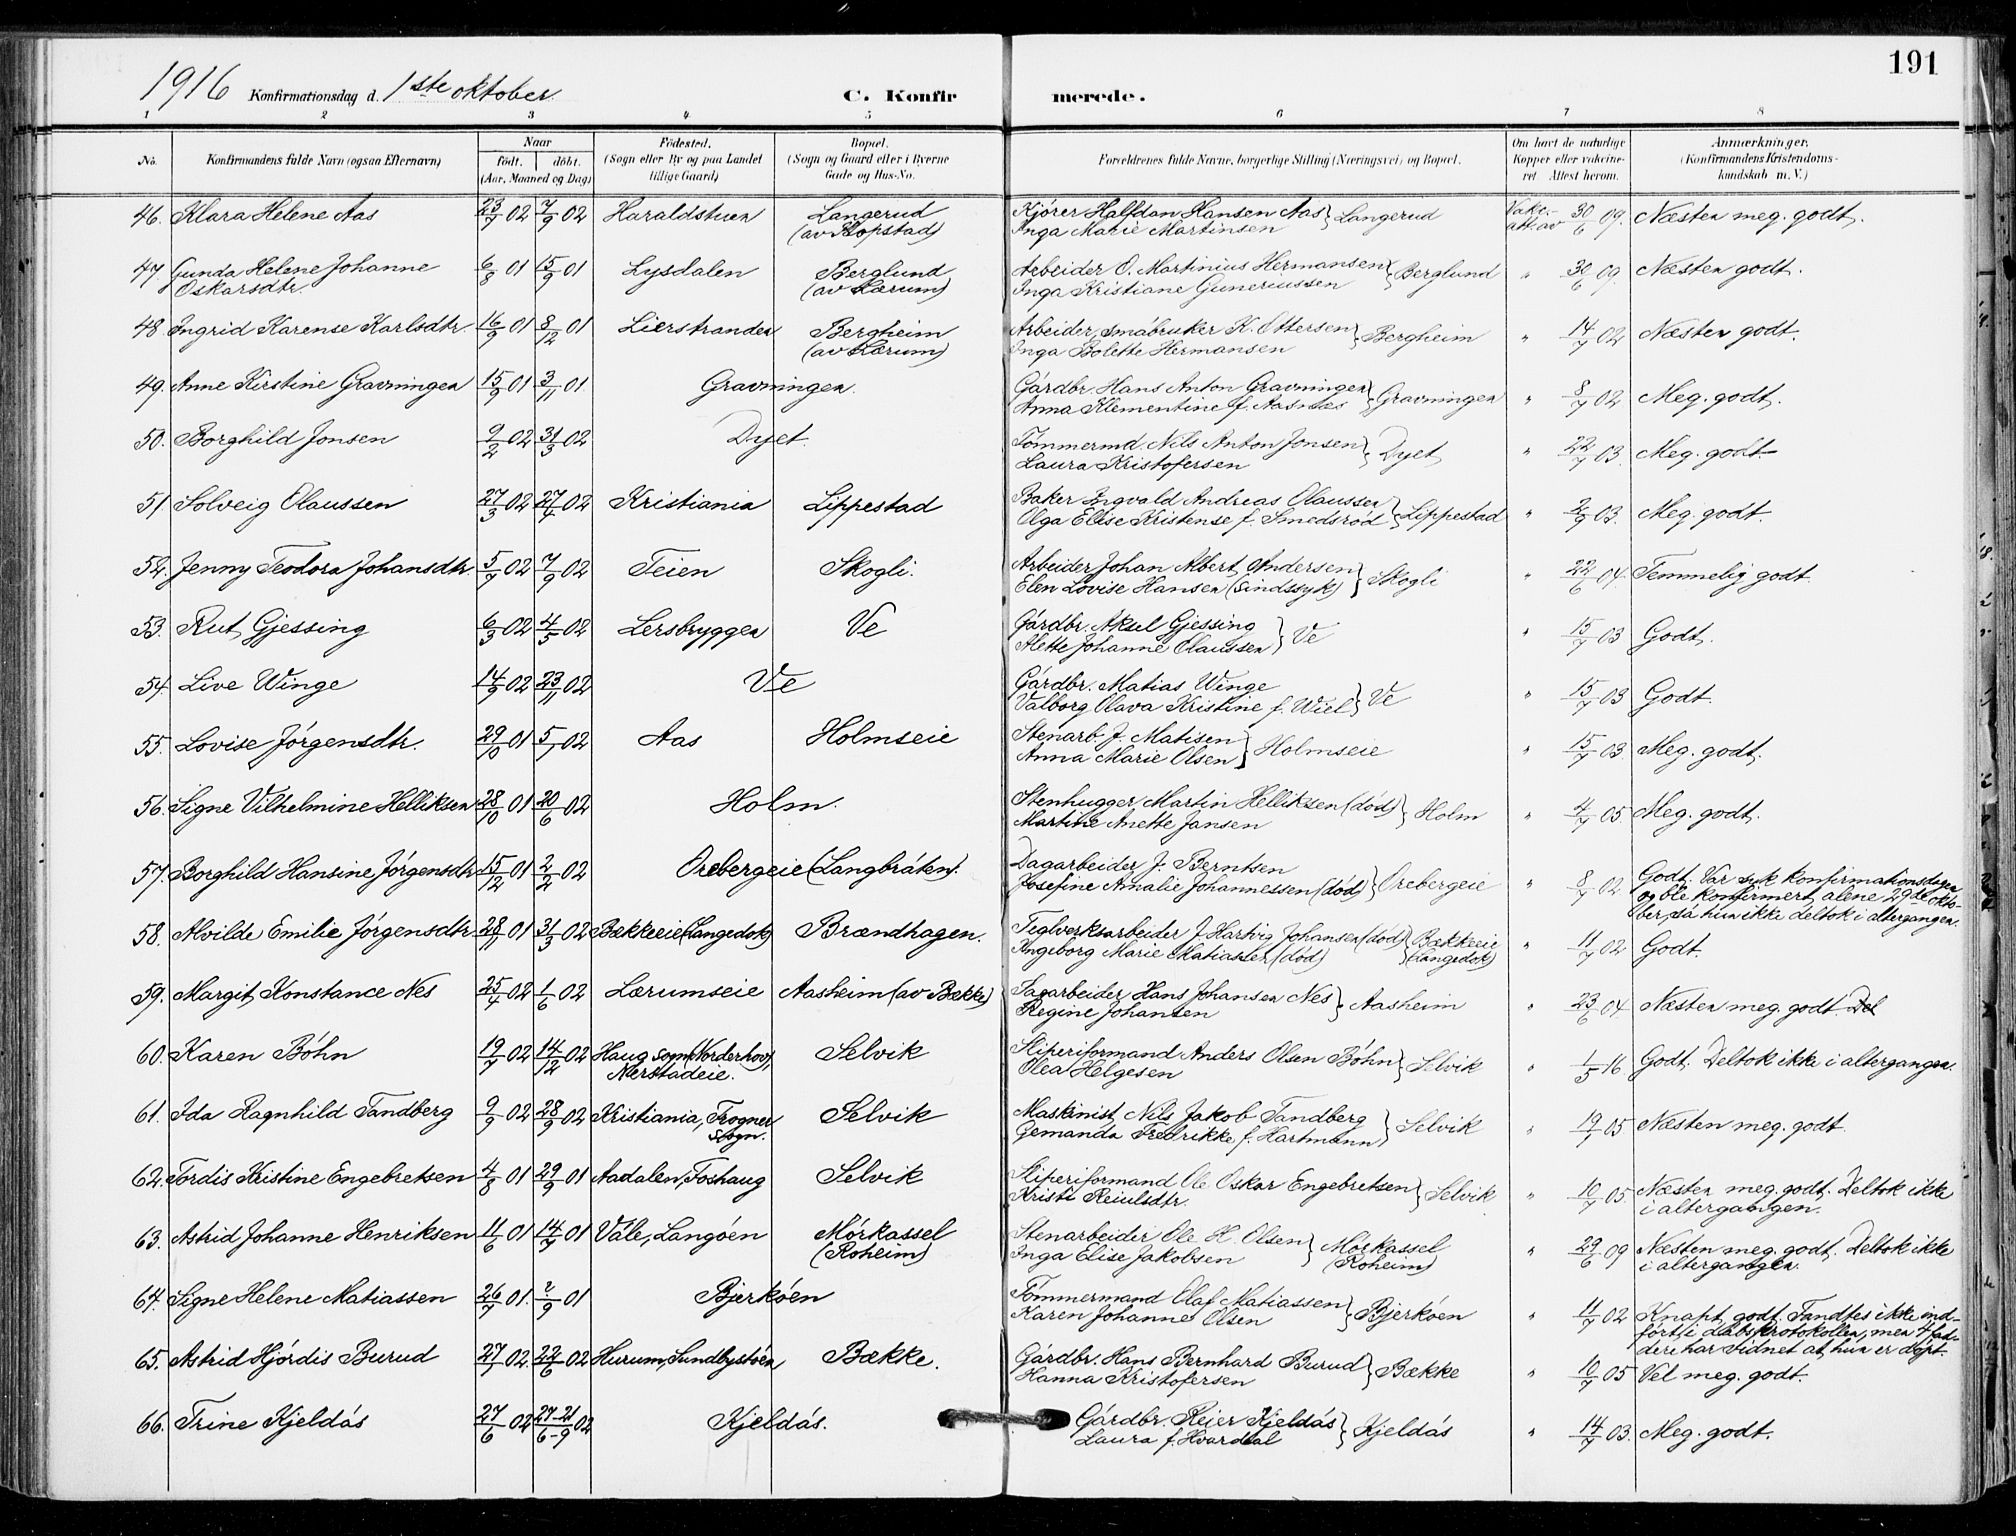 191
1916 Konfirmationsdag d. 1ste oktober. C. Konfirmerede.
1 2 3 4 5 6 7 8
No. Konfirmandens fulde Navn (ogsaa Efternavn) Naar født. døbt. (Aar, Maaned og Dag) Fødested. (Sogn eller By og paa Landet tillige Gaard) Bopæl. (Sogn og Gaard eller i Byerne Gade og Hus-No. Forældrenes fulde Navne, borgerlige Stilling (Næringsvei) og Bopæl. Om havt de naturlige Kopper eller vakcineret Attest herom. Anmærkninger. (Konfirmandens Kristendomskundskab m. V.)
46. Klara Helene Aas 23/7 02 7/9 02 Haraldstuen Langerud (av Kopstad) Kjører Halfdan Hansen Aas Inga Marie Martinsen } Langerud Vakc.-att. av 30/6 09. Næsten meg. godt.
47. Gunda Helene Johanne Oskarsdtr. 6/8 01 15/9 01 Lysdalen Berglund (av Lærum) Arbeider O. Martinius Hermansen Inga Kristiane Guneriussen } Berglund " 30/6 09. Næsten godt.
48. Ingrid Karense Karlsdtr. 16/9 01 8/12 01 Lierstranden Bergheim (av Lærum) Arbeider, småbruker K. Ottersen Inga Bolette Hermansen } Bergheim " 14/7 02 Næsten godt.
49. Anne Kirstine Gravningen 15/9 01 3/11 01. Gravningen. Gårdbr. Hans Anton Gravningen Anna Klementine f. Aasnæs } Gravningen " 8/7 02 Meg. godt.
50. Borghild Jonsen 9/2 02 31/3 02 Dyet. Tømmermd. Nils Anton Jonsen Laura Kristofersen } Dyet " 22/7 03. Meg. godt.
51. Solveig Olaussen 27/3 02 27/4 02 Kristiania Lippestad Baker Ingvald Andreas Olaussen Olga Elise Kristense f. Smedsrød } Lippestad " 2/9 03. Meg. godt.
52. Jenny Teodora Johansdtr. 5/7 02 7/9 02 Teien Skogli. Arbeider Johan Albert Andersen Elen Lovise Hansen (sindssyk) } Skogli " 22/6 04. Temmelig godt.
53. Rut Gjessing 6/3 02 4/5 02 Lersbryggen Ve Gårdbr. Aksel Gjessing Mette Johanne Olaussen } Ve " 15/7 03 Godt.
54. Live Winge 14/9 02 23/11 02 Ve Gårdbr. Matias Winge Valborg Olava Kristine f. Wiel } Ve " 15/7 03 Godt.
55. Lovise Jørgensdtr. 29/10 01 5/1 02 Aas Holmseie Stenarb. J. Matisen Anna Marie Olsen } Holmseie " 15/7 03 Meg. godt.
56. Signe Vilhelmine Helliksen 28/10 01 20/6 02 Holm. Stenhugger Martin Helliksen (død) Martine Anette Jansen } Holm " 4/7 05 Meg. godt.
57. Borghild Hansine Jørgensdtr. 15/12 01 2/2 02 Orebergeie (Langbråten). Dagarbeider J. Berntsen Josefine Amalie Johannessen (død) } Orebergeie " 8/7 02 Godt. Var syk konfirmationsdagen og ble konfirmert alene 29de oktober, så hun ikke deltok i altergangen.
58. Alvilde Emilie Jørgensdtr. 28/11 01 31/3 02 Bækkeeie (Langedok) Brændhagen. Teglverksarbeider J. Hartvig Johansen (død) Ingeborg Marie Matiassen (død) } Bækkeeie (Langedok) " 11/7 02 Godt.
59. Margit Konstance Nes 25/4 02 1/6 02 Lærumseie Aasheim (av Bække) Sagarbeider Hans Johansen Nes Regine Johansen } Aasheim " 23/6 04. Næsten meg. godt Del
60. Karen Bøhn 19/7 02 14/12 02 Haug sogn (Norderhov), Nerstadeie. Selvik Sliperiformand Anders Olsen Bøhn Olea Helgesen } Selvik " 1/5 16 Godt. Deltok ikke i altergangen.
61. Ida Ragnhild Tandberg 9/9 02 28/9 02 Kristiania, Frogner sogn. Selvik Maskinist Nils Jakob Tandberg Gemanda Fredrikke f. Hartmann } Selvik " 19/7 05 Næsten meg. godt.
62. Tordis Kristine Engebretsen 4/8 01 29/9 01 Aadalen, Foshaug Selvik Sliperiformand Ole Oskar Engebretsen Kristi Reiulsdtr. } Selvik " 10/7 05 Næsten meg. godt. Deltok ikke i altergangen.
63. Astrid Johanne Henriksen 11/6 01 14/7 01 Våle, Langøen Mørkassel (Roheim) Stenarbeider Ole H. Olsen Inga Elise Jakobsen } Mørkassel (Roheim) " 29/6 09 Næsten meg. godt. Deltok ikke i altergangen.
64. Signe Helene Matiassen 26/7 01. ?/9 01 Bjerkøen Tømmermand Olaf Matiassen Karen Johanne Olsen } Bjerkøen " 11/7 02 Knapt godt. Fandtes ikke indført i dåbsprotokollen, men 4 faddere har vidnet at hun er døpt.
65. Astrid Hjørdis Burud 27/7 02. 22/6 02 Hurum, Sundbystøen Bække. Gårdbr. Hans Bernhard Burud Hanna Kristofersen } Bække " 10/7 05 Vel meg. godt.
66. Trine Kjeldås 27/6 02 27-21/6-9 02 Kjeldås. Gårdbr. Reier Kjeldås Laura f. Hvardal } Kjeldås " 14/7 03. Meg. godt.